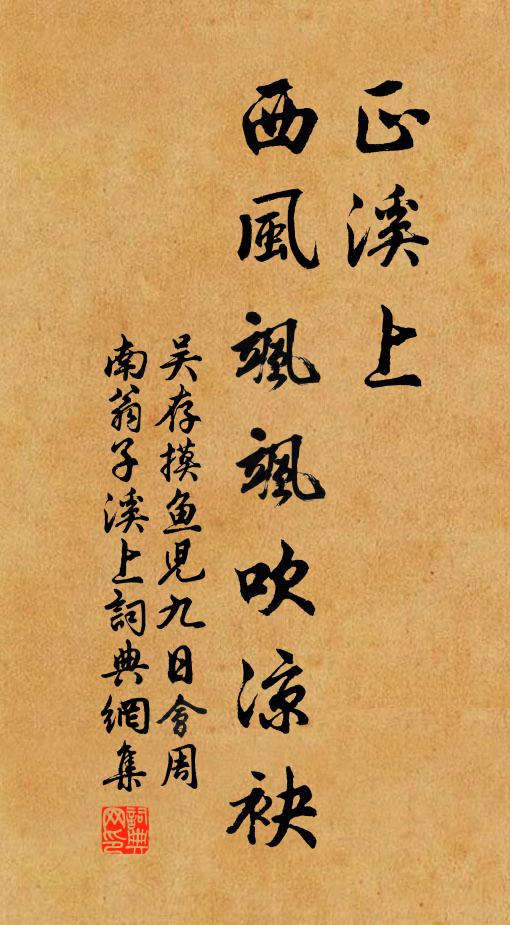 正溪上
西風颯颯吹涼袂
吴存摸鱼児九日會周
南翁子溪上詞典網集
詞典网印